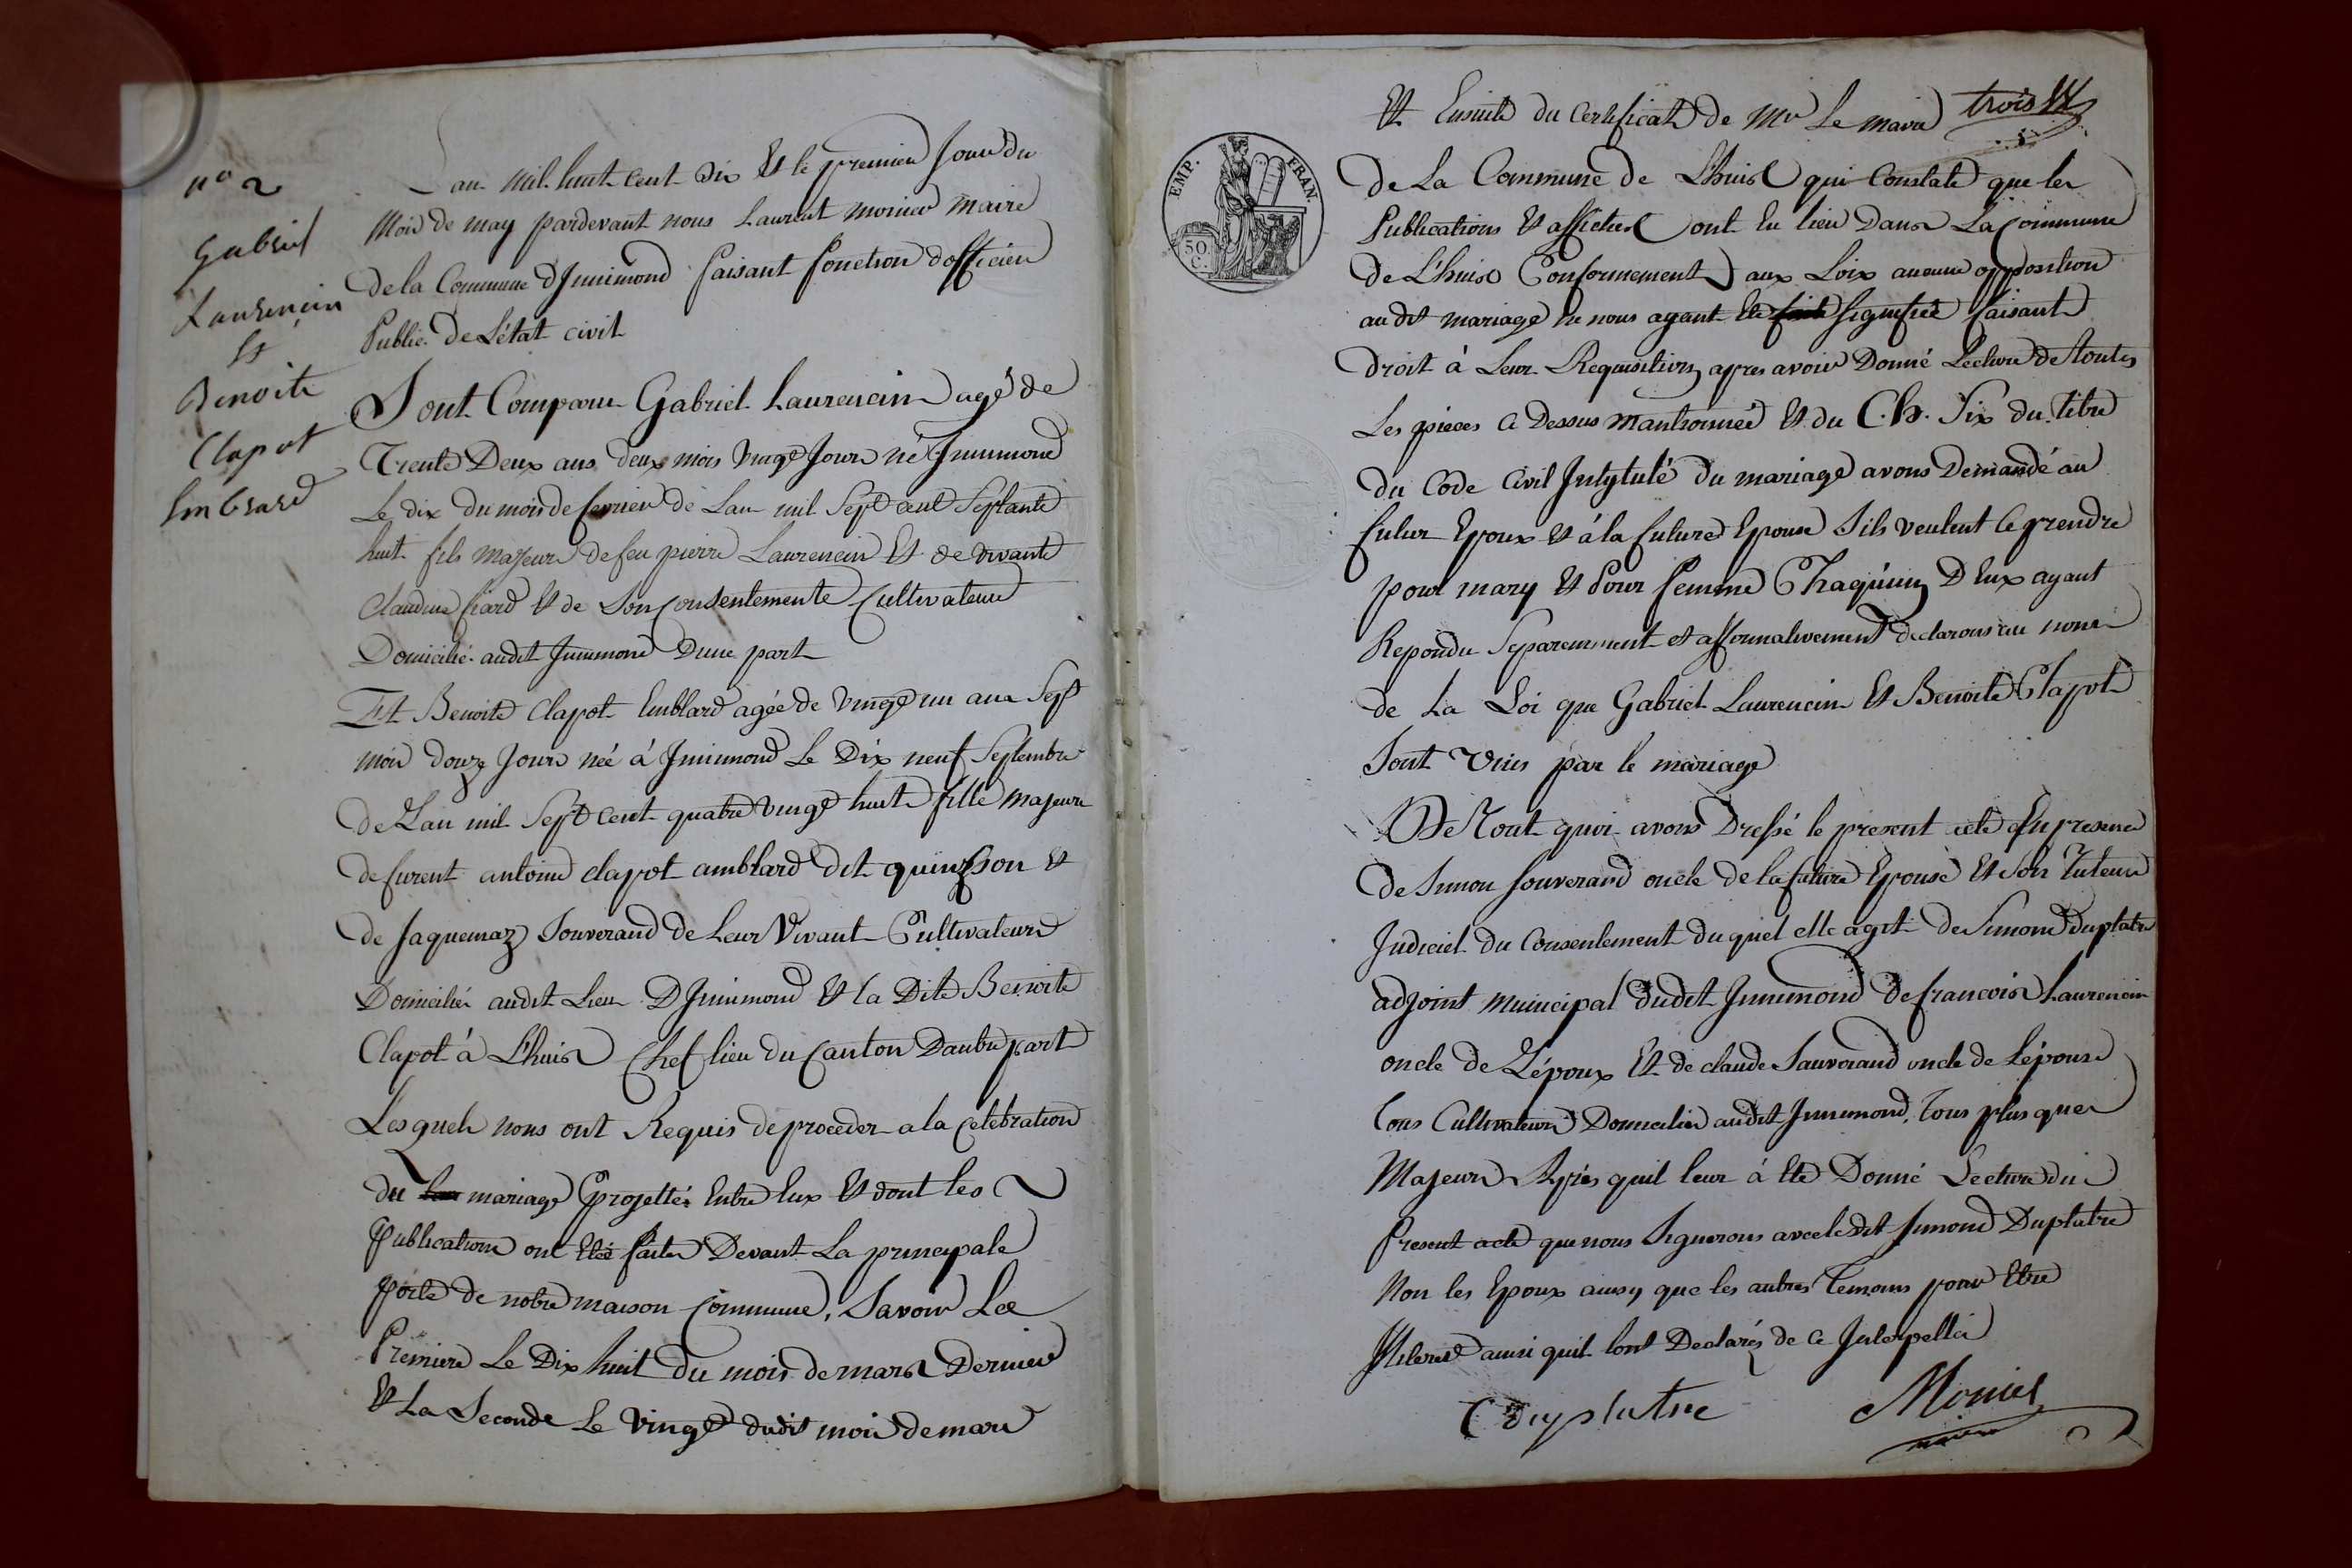 n° 2
Gabriel
Laurencin
Et
Benoite
Clapot
Emblard
Lan mil huit cent dix Et le premier Jour du
Mois de may pardevant nous Laurent monier maire
de la Commune d'Innimond faisant fonction dofficier
Public de L'état civil
Sont Comparu Gabriel Laurencin agé de
Trente Deux ans deux mois vingt Jour né Innimond
Le dix du mois de fevrier de Lan mil Sept cent Septante
huit fils majeur de feu pierre Laurencin Et de vivante
Claudine fiard Et de Son Consentemente Cultivateur
Domicilié audit Innimond Dune part
Et Benoite Clapot Emblard agée de vingt un ans Sept
mois douze Jours née à Innimond Le Dix neuf Septembre
de Lan mil Sept cent quatre vingt huit fille majeure
de furent antoine clapot amblard dit quinzson Et
de Jaquemaz Souverand de Leur Vivant Cultivateurs
Domiciliés audit Lieu D'Innimond Et la Dite Benoite
Clapot à L'huis Chef lieu du Canton Dautre part
Lesquels nous ont Requis de proceder a la Celebration
du mariage projettés Entre Eux Et dont les
Publications ont Eté faites Devant La principale
porte de notre maison Commune, Savoir La
Premiere Le Dix huit du mois de mars Dernier
Et La Seconde Le vingt dudit mois de mars
trois
Et Ensuite du Certificat de Mr Le maire
EMP. FRAN.
50 C.
De La Commune de L'huis qui Constate que les
Publications Et affiches ont Eu lieu Dans La Commune
de L'huis Conformement aux Loix aucune opposition
au dit mariage ne nous ayant Eté fait Signifiée faisant
Droit à Leur Requisition apres avoir Donné Lecture de toutes
Les pieces Ci Dessus mantionnée Et du Ch. Six du titre
du Code Civil Intytulé du mariage avons Demandé au
futur Epoux Et á la future Epouse Sils veulent Ce prendre
pour mary Et Pour femme Chaqu'un D'Eux ayant
Repondu Separemment et affirmativement declarons au nom
de La Loi que Gabriel Laurencin Et Benoite Clapot
Sont Unis par le mariage
De Tout quoi avons Dressé le present acte En presence
de Simon Souverand oncle de la future Epouse Et Son Tuteur
Judiciel du Consentement du quel elle agit de Simond Duplatre
adjoint municipal dudit Innimond de francois Laurencin
oncle de L'époux Et de claude Sauverand oncle de L'épouse
tous Cultivateurs Domiciliés audit Innimond, tous plus que
Majeurs Après quil leur à Eté Donné Lecture du
Present acte que nous Signerons avec le dit Simond Duplatre
Non les Epoux ausy que les autres Temoins pour Etre
Illeres ainsi quil lont Declarés de Ce Interpellés
Duplatre Monier
maire